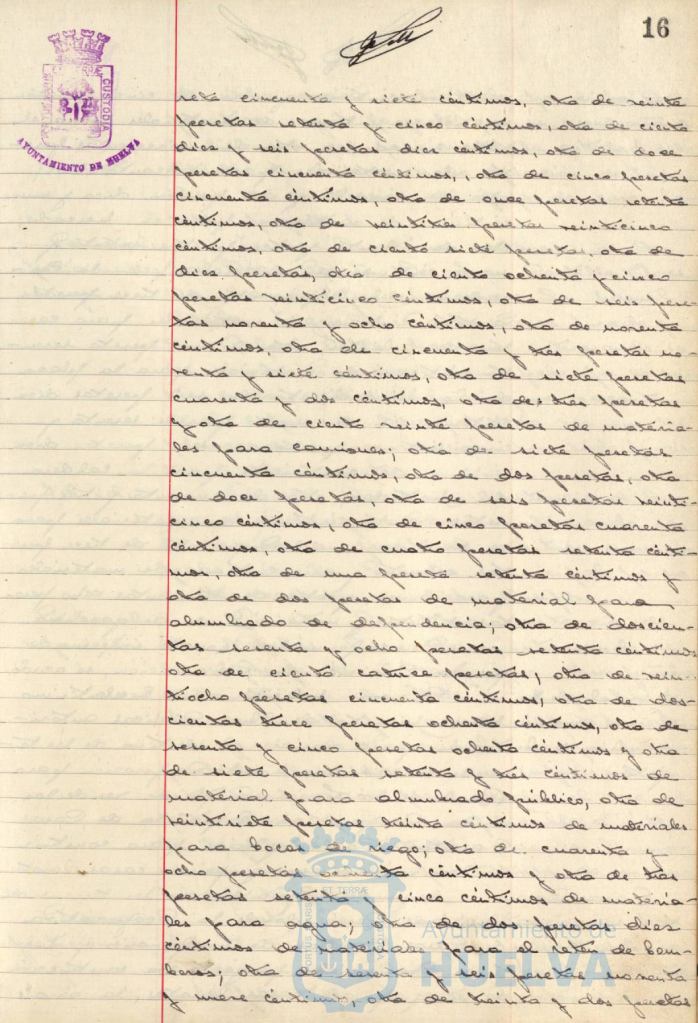 16
CUSTODIA
AYUNTAMIENTO DE HUELVA
seta cincuenta y siete céntimos, otra de veinte
pesetas setenta y cinco céntimos, otra de ciento
diez y seis pesetas diez céntimos, otra de doce
pesetas cincuenta céntimos, otra de cinco pesetas
cincuenta céntimos, otra de once pesetas setenta
céntimos, otra de veintitres pesetas veinticinco
céntimos, otra de ciento siete pesetas, otra de
diez pesetas, otra de ciento ochenta y cinco
pesetas veinticinco céntimos, otra de seis pese-
tas noventa y ocho céntimos, otra de noventa
céntimos, otra de cincuenta y tres pesetas no-
venta y siete céntimos, otra de siete pesetas
cuarenta y dos céntimos, otra de tres pesetas
y otra de ciento veinte pesetas de materia-
les para camiones; otra de siete pesetas
cincuenta céntimos, otra de dos pesetas, otra
de doce pesetas, otra de seis pesetas veinti-
cinco céntimos, otra de cinco pesetas cuarenta
céntimos, otra de cuatro pesetas setenta cénti-
mos, otra de una peseta setenta céntimos y
otra de dos pesetas de material para
alumbrado de dependencia; otra de doscien-
tas sesenta y ocho pesetas setenta céntimos
otra de ciento catorce pesetas, otra de vein-
tiocho pesetas cincuenta céntimos, otra de dos-
cientas trece pesetas ochenta céntimos, otra de
sesenta y cinco pesetas ochenta céntimos y otra
de siete pesetas setenta y tres céntimos de
material para alumbrado público, otra de
veintisiete pesetas treinta céntimos de materiales
para bocas de riego; otra de cuarenta y
ocho pesetas céntimos y otra de tres
pesetas setenta y cinco céntimos de materia-
les para agua; otra de dos pesetas diez
céntimos de materiales para el retén de bom-
beros; otra de sesenta y seis pesetas noventa
y nueve céntimos, otra de treinta y dos pesetas
Ayuntamiento de
HUELVA